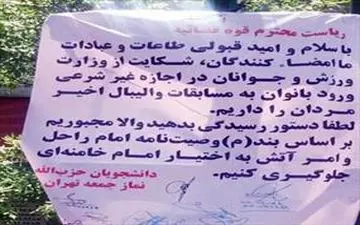 ریاست محترم قوه قضائیه
باسلام و امید قبولی طاعات و عبادات
ماامضاء کنندگان، شکایت از وزارت
ورزش و جوانان در اجازه غیر شرعی
ورود بانوان به مسابقات والیبال اخیر
مردان را داریم.
لطفا دستور رسیدگی بدهید والا مجبوریم
بر اساس بند(م) وصیت‌نامه امام راحل
و امر آتش به اختیار امام خامنه‌ای
جلوگیری کنیم.
دانشجویان حزب‌الله
نماز جمعه تهران